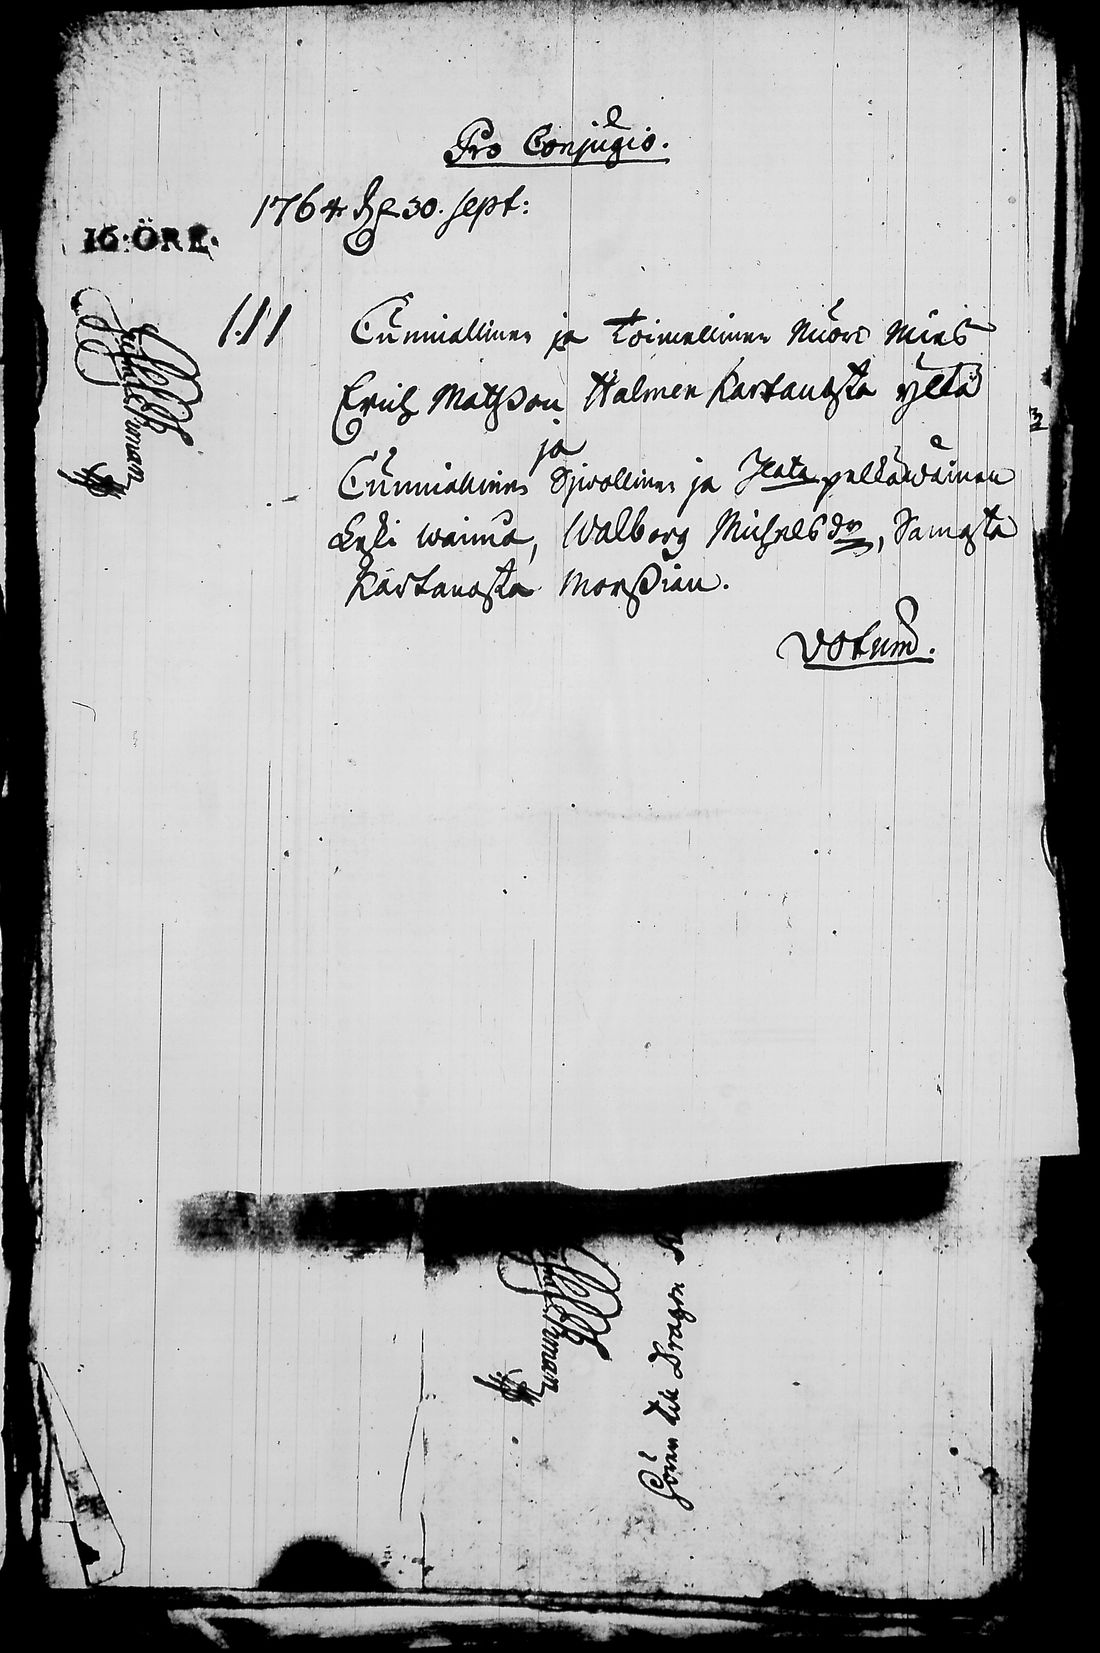 Pro Conjugio.
1764 d. 30. sept:
16·ÖRE·
1.11 Cunniallinen ja Toimellinen Nuori Mies
Erich Matsson Halmen Kartanosta ylkä
ja
Cunniallinen Sjivollinen ja pelkäwäinen
Leski waimo, Walborg Michelsdr, Samasta
Kartanosta Morsian.
Votum.
Sören till Dragon